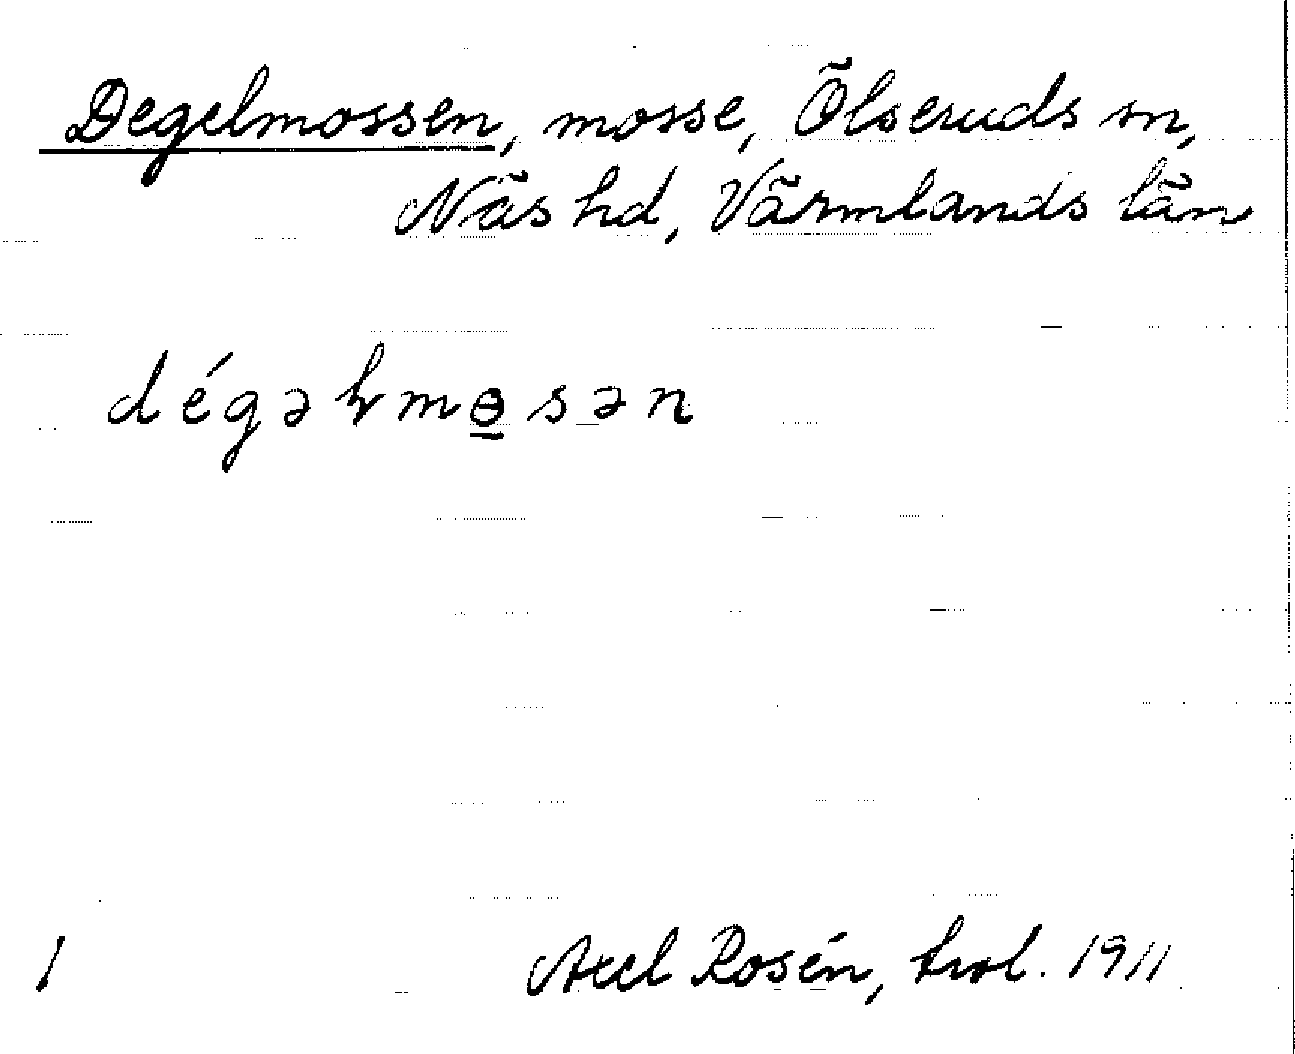 Degelmossen, mosse, Ölseruds sn,
Näs hd, Värmlands län
dégəɫmɵ̱sən
1 Axel Rosén, trol. 1911